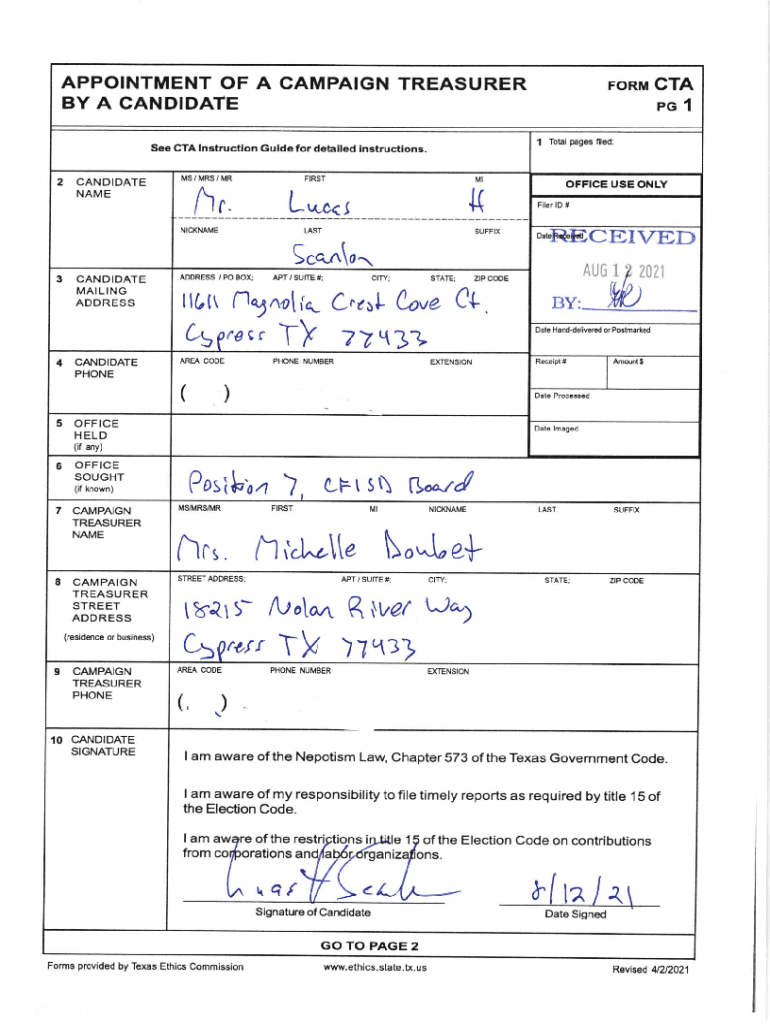 APPOINTMENT OF A CAMPAIGN TREASURER
BY A CANDIDATE
FORM CTA
PG 1
See CTA Instruction Guide for detailed instructions.
1 Total pages filed:
2 CANDIDATE
NAME
MS / MRS / MR FIRST MI
Mr. Lucas H
NICKNAME LAST SUFFIX
Scanlon
OFFICE USE ONLY
Filer ID #
Date Received
RECEIVED
AUG 12 2021
BY:
3 CANDIDATE
MAILING
ADDRESS
ADDRESS / PO BOX; APT / SUITE #; CITY; STATE; ZIP CODE
11611 Magnolia Crest Cove Ct.
Cypress TX 77433
Date Hand-delivered or Postmarked
4 CANDIDATE
PHONE
AREA CODE PHONE NUMBER EXTENSION
( )
Receipt # Amount $
Date Processed
Date Imaged
5 OFFICE
HELD
(if any)
6 OFFICE
SOUGHT
(if known)
Position 7, CFISD Board
7 CAMPAIGN
TREASURER
NAME
MS/MRS/MR FIRST MI NICKNAME LAST SUFFIX
Mrs. Michelle Doubet
8 CAMPAIGN
TREASURER
STREET
ADDRESS
(residence or business)
STREET ADDRESS; APT / SUITE #; CITY; STATE; ZIP CODE
18215 Nolan River Way
Cypress TX 77433
9 CAMPAIGN
TREASURER
PHONE
AREA CODE PHONE NUMBER EXTENSION
( )
10 CANDIDATE
SIGNATURE
I am aware of the Nepotism Law, Chapter 573 of the Texas Government Code.
I am aware of my responsibility to file timely reports as required by title 15 of
the Election Code.
I am aware of the restrictions in title 15 of the Election Code on contributions
from corporations and labor organizations.
Lucas H Scanlon
8/12/21
Signature of Candidate
Date Signed
GO TO PAGE 2
Forms provided by Texas Ethics Commission
www.ethics.state.tx.us
Revised 4/2/2021